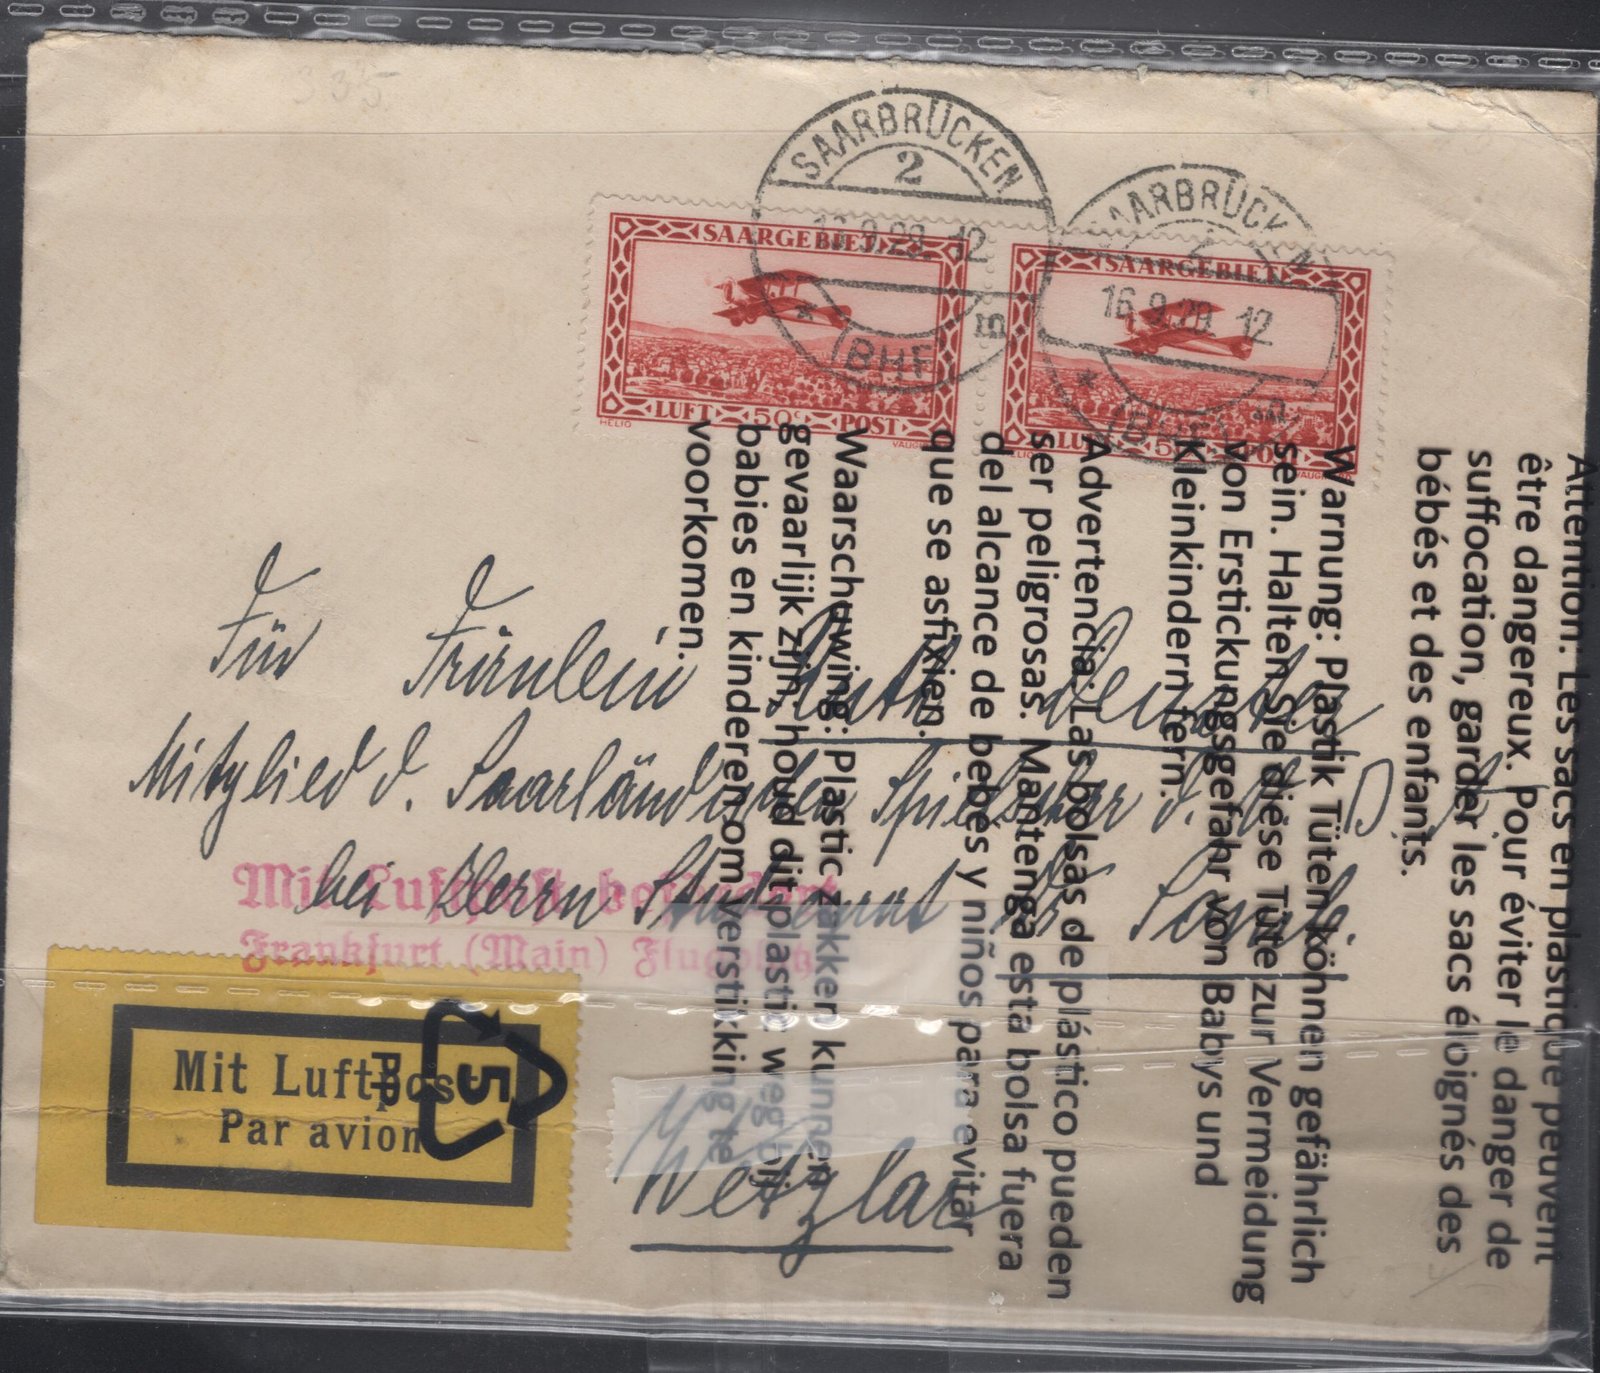 335
SAARBRÜCKEN
2
9.29. 12
m
BHF
SAARBRÜCKEN
16.9.29. 12
SAARGEBIET
LUFT 50c POST
HELIO
SAARGEBIET
Für Fräulein Ruth
Mitglied d. Saarländischen
bei Herrn Dr.
Wetzlar
Mit Luftpost befördert
Frankfurt (Main) Flugplatz
Mit Luftpost
Par avion
5
PP
Attention: Les sacs en plastique peuvent
être dangereux. Pour éviter le danger de
suffocation, garder les sacs éloignés des
bébés et des enfants.
Warnung: Plastik Tüten können gefährlich
sein. Halten Sie diese Tüte zur Vermeidung
von Erstickungsgefahr von Babys und
Kleinkindern fern.
Advertencia: Las bolsas de plástico pueden
ser peligrosas. Mantenga esta bolsa fuera
del alcance de bebés y niños para evitar
que se asfixien.
Waarschuwing: Plastic zakken kunnen
gevaarlijk zijn, houd dit plastic weg bij
babies en kinderen om verstikking te
voorkomen.